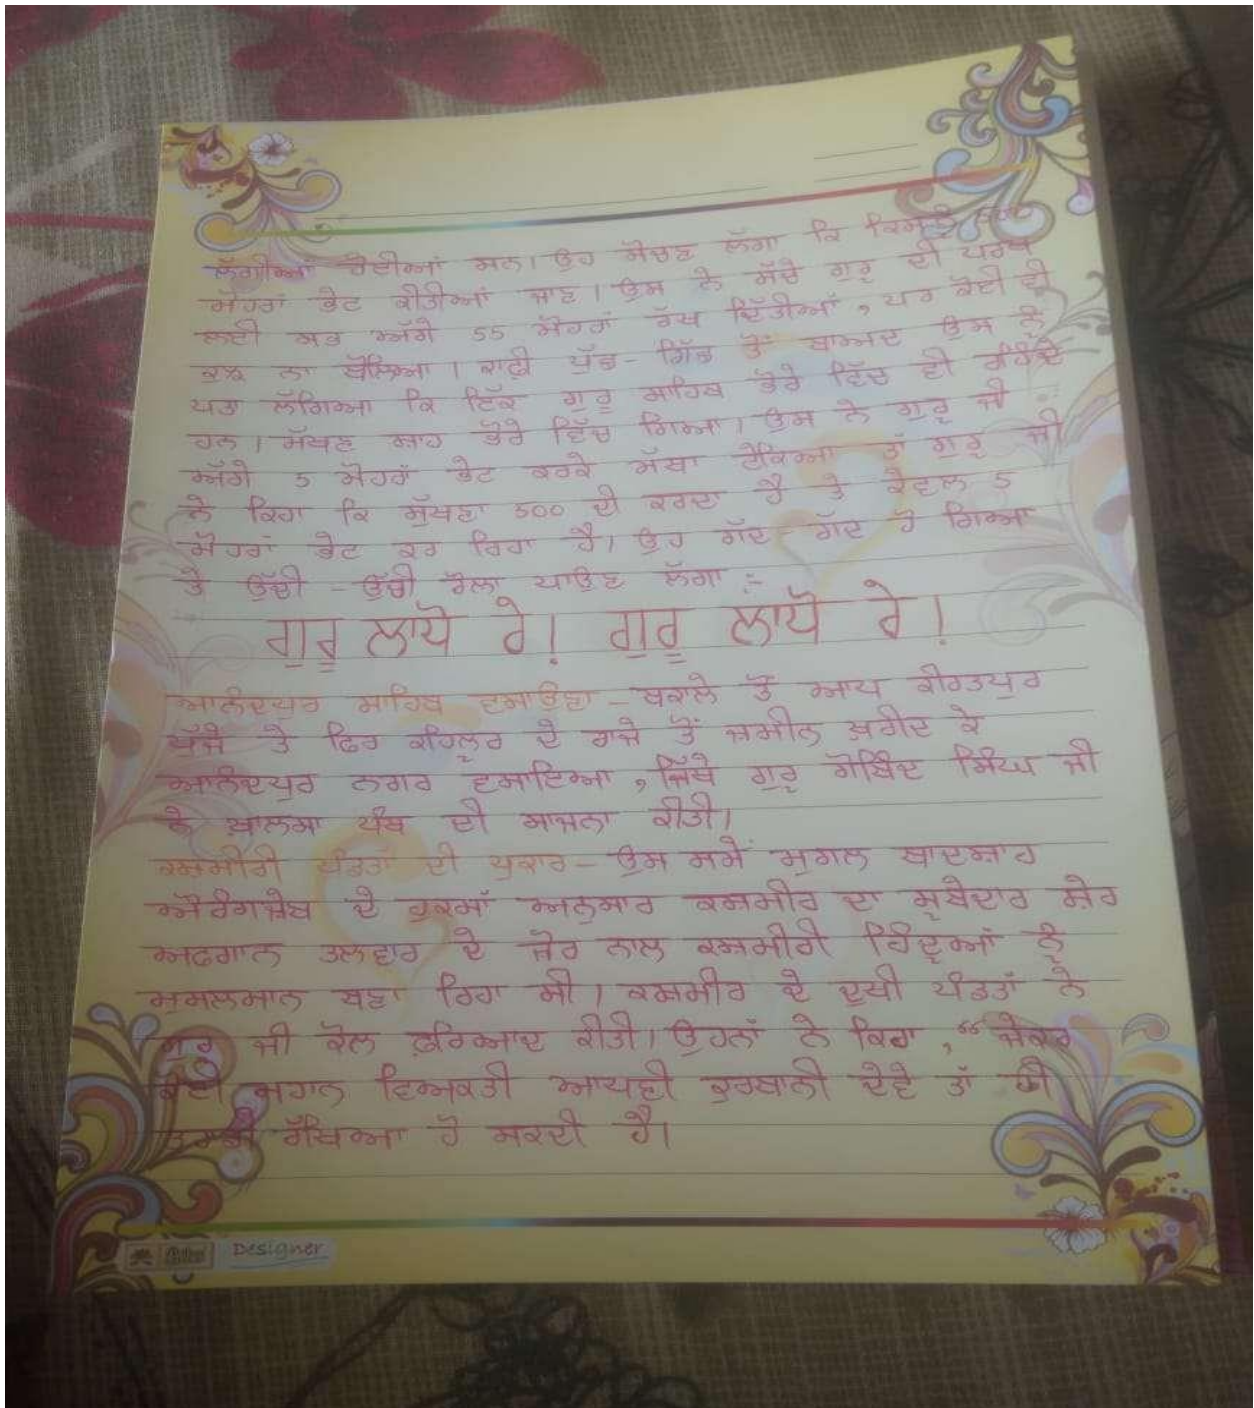 ਲੱਗੀਆਂ ਹੋਈਆਂ ਸਨ। ਉਹ ਸੋਚਣ ਲੱਗਾ ਕਿ ਕਿਸਨੂੰ
ਮੋਹਰਾਂ ਭੇਟ ਕੀਤੀਆਂ ਜਾਣ। ਉਸ ਨੇ ਸੱਚੇ ਗੁਰੂ ਦੀ ਪਰਖ
ਲਈ ਸਭ ਅੱਗੇ 55 ਮੋਹਰਾਂ ਰੱਖ ਦਿੱਤੀਆਂ, ਪਰ ਕੋਈ ਵੀ
ਕੁਝ ਨਾ ਬੋਲਿਆ। ਕਾਫ਼ੀ ਪੁੱਛ-ਗਿੱਛ ਤੋਂ ਬਾਅਦ ਉਸ ਨੂੰ
ਪਤਾ ਲੱਗਿਆ ਕਿ ਇੱਕ ਗੁਰੂ ਸਾਹਿਬ ਭੋਰੇ ਵਿੱਚ ਵੀ ਰਹਿੰਦੇ
ਹਨ। ਮੱਖਣ ਸ਼ਾਹ ਭੋਰੇ ਵਿੱਚ ਗਿਆ। ਉਸ ਨੇ ਗੁਰੂ ਜੀ
ਅੱਗੇ 5 ਮੋਹਰਾਂ ਭੇਟ ਕਰਕੇ ਮੱਥਾ ਟੇਕਿਆ ਤਾਂ ਗੁਰੂ ਜੀ
ਨੇ ਕਿਹਾ ਕਿ ਸੁੱਖਣਾ 500 ਦੀ ਕਰਦਾ ਹੈ ਤੇ ਕੇਵਲ 5
ਮੋਹਰਾਂ ਭੇਟ ਕਰ ਰਿਹਾ ਹੈ। ਉਹ ਗੱਦ-ਗੱਦ ਹੋ ਗਿਆ
ਤੇ ਉੱਚੀ-ਉੱਚੀ ਰੌਲਾ ਪਾਉਣ ਲੱਗਾ :-
ਗੁਰੂ ਲਾਧੋ ਰੇ! ਗੁਰੂ ਲਾਧੋ ਰੇ!
ਆਨੰਦਪੁਰ ਸਾਹਿਬ ਵਸਾਉਣਾ - ਬਕਾਲੇ ਤੋਂ ਆਪ ਕੀਰਤਪੁਰ
ਪੁੱਜੇ ਤੇ ਫਿਰ ਕਹਿਲੂਰ ਦੇ ਰਾਜੇ ਤੋਂ ਜਮੀਨ ਖ਼ਰੀਦ ਕੇ
ਆਨੰਦਪੁਰ ਨਗਰ ਵਸਾਇਆ, ਜਿੱਥੇ ਗੁਰੂ ਗੋਬਿੰਦ ਸਿੰਘ ਜੀ
ਨੇ ਖ਼ਾਲਸਾ ਪੰਥ ਦੀ ਸਾਜਨਾ ਕੀਤੀ।
ਕਸ਼ਮੀਰੀ ਪੰਡਤਾਂ ਦੀ ਪੁਕਾਰ - ਉਸ ਸਮੇਂ ਮੁਗਲ ਬਾਦਸ਼ਾਹ
ਔਰੰਗਜ਼ੇਬ ਦੇ ਹੁਕਮਾਂ ਅਨੁਸਾਰ ਕਸ਼ਮੀਰ ਦਾ ਸੂਬੇਦਾਰ ਸ਼ੇਰ
ਅਫਗਾਨ ਤਲਵਾਰ ਦੇ ਜ਼ੋਰ ਨਾਲ ਕਸ਼ਮੀਰੀ ਹਿੰਦੂਆਂ ਨੂੰ
ਮੁਸਲਮਾਨ ਬਣਾ ਰਿਹਾ ਸੀ। ਕਸ਼ਮੀਰ ਦੇ ਦੁਖੀ ਪੰਡਤਾਂ ਨੇ
ਗੁਰੂ ਜੀ ਕੋਲ ਫ਼ਰਿਆਦ ਕੀਤੀ। ਉਹਨਾਂ ਨੇ ਕਿਹਾ, “ਜੇਕਰ
ਕੋਈ ਮਹਾਨ ਵਿਅਕਤੀ ਆਪਣੀ ਕੁਰਬਾਨੀ ਦੇਵੇ ਤਾਂ ਹੀ
ਰੱਖਿਆ ਹੋ ਸਕਦੀ ਹੈ।
Designer